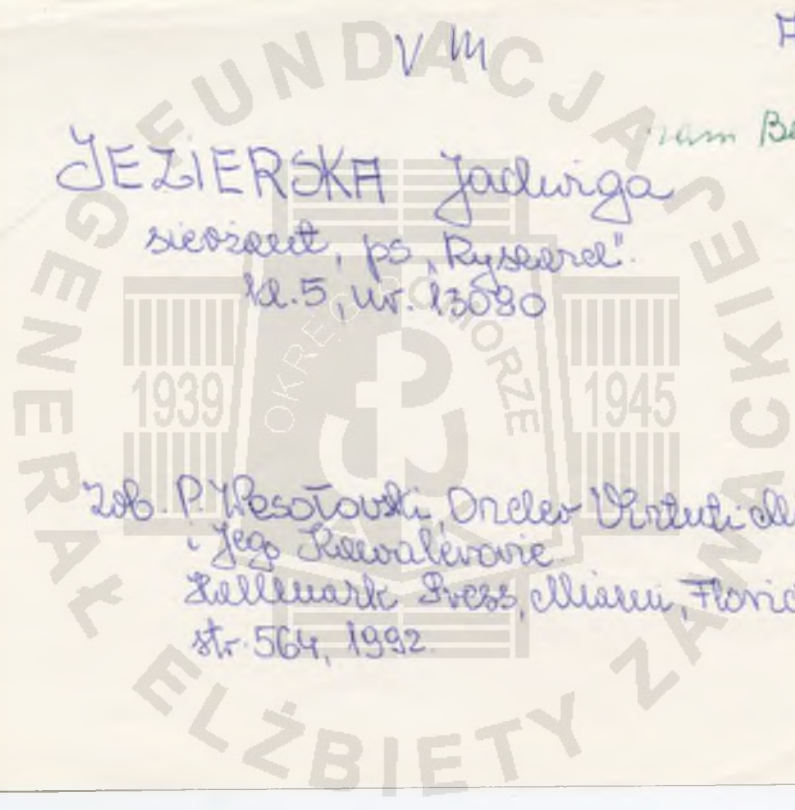 V M
JEZIERSKA Jadwiga
sierżant, ps. „Ryszard".
kl. 5, nr. 13090
zob. P. Wesołowski, Order Virtuti
i Jego Kawalerowie
Hallmark Press, Miami,
str. 564, 1992.
FUNDACJA GENERAŁ ELŻBIETY ZAWACKIEJ
1939
1945
OKRĘG POMORZE
AK